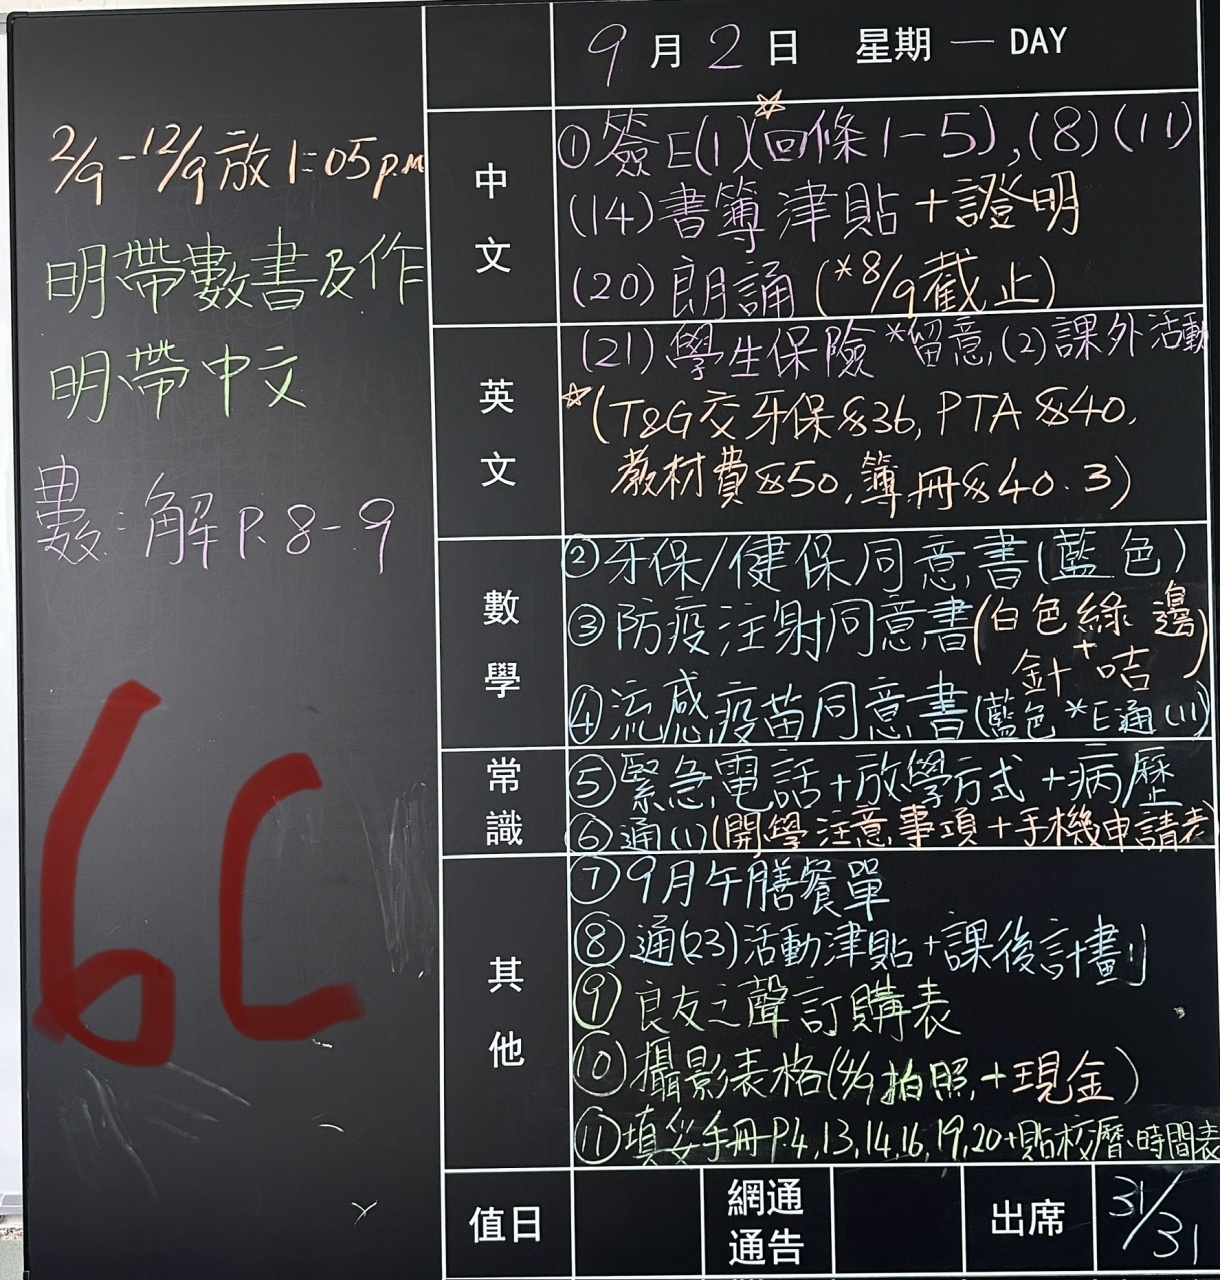 9月2日 星期一 DAY
2/9-12/9放1:05p.m
明帶數書及作
明帶中文
數:解P.8-9
6C
中文
①簽E(1)(☆回條1-5),(8)(11)
(14)書簿津貼+證明
(20)朗誦(*8/9截止)
英文
(21)學生保險*留意,(2)課外活動
☆(T&G交牙保$36, PTA $40,
教材費$50,簿冊$40.3)
數學
②牙保/健保同意書(藍色)
③防疫注射同意書(白色綠邊
+針咭)
④流感疫苗同意書(藍色*E通(11)
常識
⑤緊急電話+放學方式+病歷
⑥通(1)(開學注意事項+手機申請表
其他
⑦9月午膳餐單
⑧通(23)活動津貼+課後計劃
⑨良友之聲訂購表
⑩攝影表格(4/9拍照,+現金)
⑪填妥手冊P.4,13,14,16,19,20+貼校曆、時間表
值日
網通
通告
出席 31/31